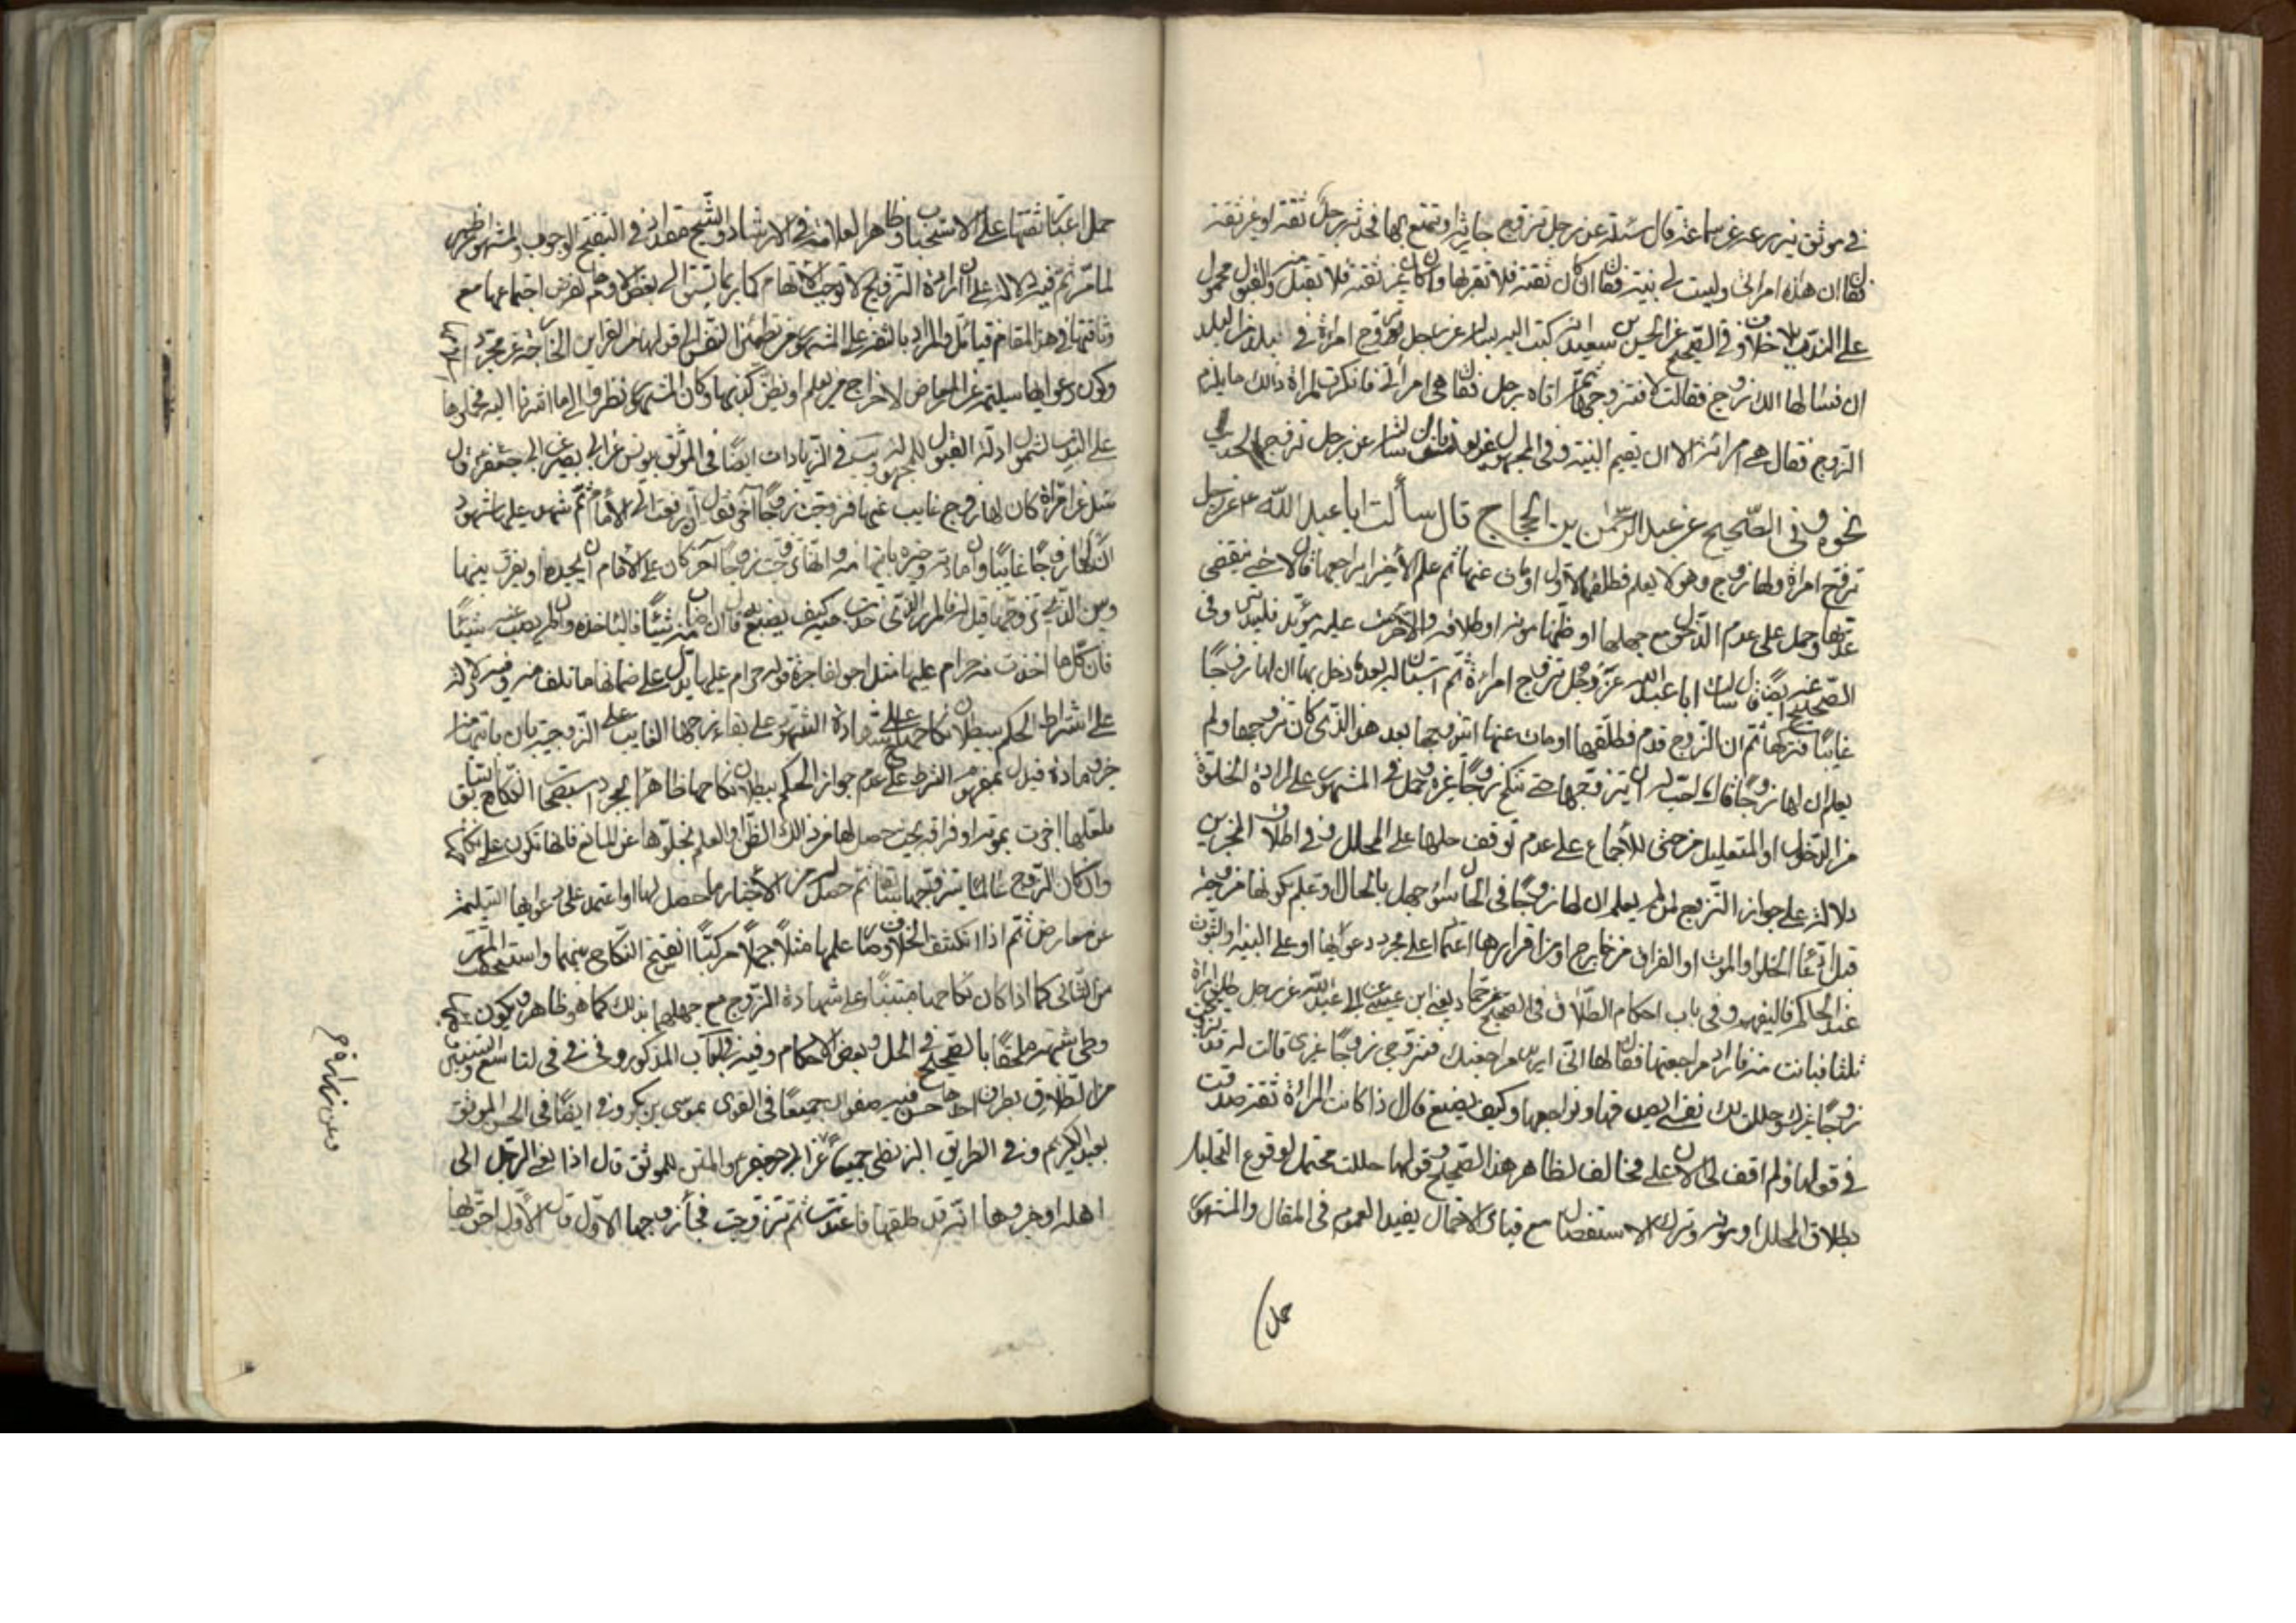 في موثق زرعة عن سماعة قال سئلته عن رجل تزوج جارية او تمتع بها فحدثه رجل ثقة او غير ثقة
فقال ان هذه امراتى وليست لى بينة فقال ان كان ثقة فلا تقربها وان كان غير ثقة فلا تقبل منه والقبول محمول
على الندب بلا خلاف وفى الصحيح عن الحسين بن سعيد انه كتب اليه يساله عن رجل تزوج امراة في بلد من البلد
ان فسالها الك زوج فقالت لا فتزوجها ثم اتاه رجل فقال هى امراتى فانكرت المراة ذالك ما يلزم
الزوج فقال هى امراته الا ان يقيم البينة وفى المجهول عن يونس سالته عن رجل تزوج الحديث
نحوه وفى الصحيح عن عبد الرحمن بن الحجاج قال سألت ابا عبد الله ع عن رجل
تزوج امراة ولها زوج وهو لا يعلم فطلقها الاول او مات عنها ثم علم الاخير ايراجعها قال لا حتى تنقضى
عدتها وحمل على عدم الدخول مع جهلها او ظنها موته او طلاقه والا حرمت عليه مؤبد فليتدبر وفى
الصحيح عنه ايضا قال سالت ابا عبد الله عن رجل تزوج امراة ثم استبان له بعد ما دخل بها ان لها زوجا
غايبا فتركها ثم ان الزوج قدم فطلقها او مات عنها ايتزوجها بعد هذا الذى كان تزوجها ولم
يعلم ان لها زوجا قال ما احب له ان يتزوجها حتى تنكح زوجا غيره وحمل في المشهور على ارادة الخلوة
من الدخول او المتعليل من حتى للاجماع على عدم توقف حلها على المحلل وفي اطلاق الخبرين
دلالة على جواز التزويج لمن لم يعلم ان لها زوجا فى الحال سواء جهل بالحال او علم بكونها مزوجة
قبل ادعا الخلو او الموت او الفراق من خارج او من اقرارها اعتمادا على مجرد دعواها او على البينة او الثبوت
عند الحاكم فاليفهم وفى باب احكام الطلاق فى الصحيح عن حماد يعنى ابن عيسى عن ابى عبد الله عن رجل طلق امراة
ثلثا فبانت منه فاراد مراجعتها فقال لها انى اريد مراجعتك فتزوجى زوجا غيرى قالت له قد تزوجت
زوجا غيرك وحللت لك نفسى ايصدقها ويراجعها وكيف يصنع قال اذا كانت المراة ثقة صدقت
في قولها ولم اقف الى الان على مخالف لظاهر هذا الصحيح وقولها حللت محتمل لوقوع التحليل
بطلاق المحلل او موته وترك الاستفصال مع قيام الاحتمال يفيد العموم فى المقال والمشهور
حمل
حمل اعتبار ثقتها على الاستحباب وظاهر العلامة في الارشاد والشيخ مقداد في التنقيح الوجوب والمشهور اظهر
لما مر ثم فيه دلالة على ان ارادة التزويج لا توجب الاتهام كما ربما يستند الى بعض الاوهام لفرض اجتماعها مع
وثاقتها في هذا المقام فيتامل والمراد بالثقة على المشهور من تطمئن النفس الى قولها من القراين الخارجة عن مجرد
وكون دعواها سليمة عن المعارض لاخراج من يعلم او يظن كذبها وكان المشهور نظروا الى ما اشرنا اليه فحملوها
على الندب لشمول ادلة القبول للمجهول وفى الزيادات ايضا فى الموثق يونس عن ابى بصير عن ابى جعفر قال
سئل عن امراة كان لها زوج غايب عنها فتزوجت زوجا آخر فقال ان رفعت الى الامام ثم شهد عليها شهود
ان لها زوجا غايبا وان مادته وخبره ياتيها منه وانها تزوجت زوجا آخر كان على الامام ان يحدها ويفرق بينها
وبين الذى تزوجها قيل له فالمهر الذى اخذت منه كيف يصنع به قال ان اصاب منه شيئا فلياخذه وان لم يصب منه شيئا
فان كل ما اخذت منه حرام عليها مثل اجر الفاجرة قوله حرام عليها يدل على ضمانها ما تلف منه وفيه دلالة
على اشتراط الحكم ببطلان نكاحها على شهادة الشهود على بقاء زوجها الغايب على الزوجية بان ياتيها منه
خبر ومادة فيدل بمفهوم الشرط على عدم جواز الحكم ببطلان نكاحها ظاهرا بمجرد استصحاب النكاح السابق
فلعلها اخبرت بموته او فراقه بحيث حصل لها من ذالك الظن او العلم بخلوها عن المانع فانها تكون على نكاحها
وان كان الزوج عالما بتزوجها سابقا ثم حصل له من الاخبار ما حصل لها او اعتمد على دعواها السليمة
عن معارض ثم اذا انكشف الخلاف وصار علمها مثلا جهلا مركبا انفسخ النكاح بينهما واستحقت المهر
من الثانى كما اذا كان نكاحها مبتنيا على شهادة الزوج مع جهلهما بذلك كما هو ظاهر ويكون
وطى شبهة ملحقا بالصحيح في الحل وبعض الاحكام وفيه في الكتاب المذكور وفى فى لتاسع والسنين
من الطلاق بطرق احدها حسن فيه صفوان جميعا في القوى بموسى بن بكر وفى ايضا فى الحسن الموثق
بعبد الكريم وفى الطريق البزنطى جميعا عن ابى جعفر والمتن للموثق قال اذا نعى الرجل الى
اهله او خبروها انه قد طلقها فاعتدت ثم تزوجت فجاء زوجها الاول قال الاول احق بها
وعن زرارة